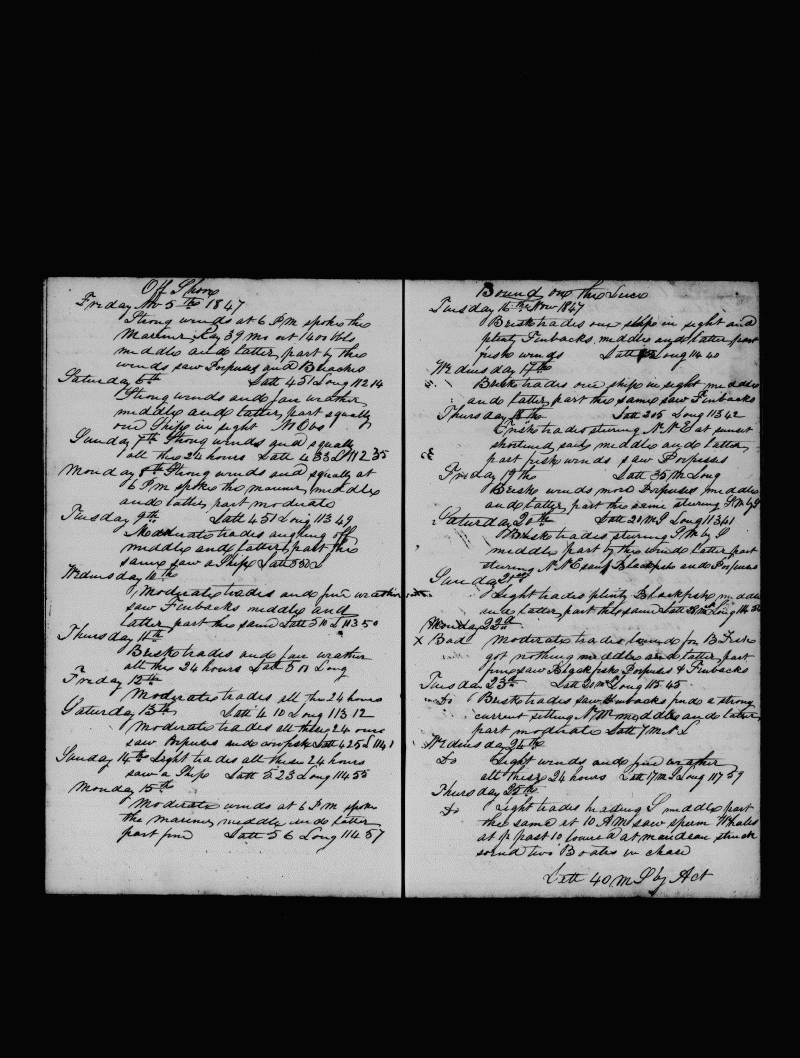 Off Shore
Friday Nov 5th 1847
Strong winds at 6 PM spoke the
Mariner, Ray 39 mo out 1400 bbls
middle and latter part by the
winds saw Porpuses and Blackfis
Saturday 6th Latt 4 51 Long 112 14
Strong winds and fair weather
middle and latter part squaly
one Ship in sight
Sunday 7th Strong winds and squaly
all the 24 hours Latt 4 33 L 112 35
Monday 8th Strong winds and squaly at
6 PM spoke the mariner, middle
and latter part moderate
Tuesday 9th Latt 4 51 Long 113 49
Moderate trades angling off
middle and latter part the
same saw a Ship Latt 5
Wednesday 10th
Moderate trades and fine weather
saw Finbacks middle and
latter part the same Latt 5 10 L 113 50
Thursday 11th
Brisk trades and fair weather
all the 24 hours Latt 5 11 Long
Friday 12th
Moderate trades all the 24 hours
Saturday 13th Latt 4 10 Long 113 12
Moderate trades all these 24 ours
saw Porpuses and cowfish Latt 4 25 L 114 1
Sunday 14th Light trades all these 24 hours
saw a Ship Latt 5 23 Long 114 55
Monday 15th
Moderate winds at 6 PM spoke
the mariner middle and latter
part fine Latt 5 6 Long 114 57
Bound on the Line
Tuesday 16th Nov 1847
Brisk trades one ship in sight and
plenty Finbacks middle and latter part
fresh winds Latt Long 114 40
Wednesday 17th
Brisk trades one ship in sight middle
and latter part the same saw Finbacks
Thursday 18th Latt 2 05 Long 113 42
Brisk trades stering N.N.E at sunset
shortened sail middle and latter
part fresh winds saw Porpuses
Friday 19th Latt 35 m Long
Brisk winds more Porpuses middle
and latter part the same stering S.W by S
Saturday 20th Latt 20 M S Long 113 41
Brisk trades stering S.W by S
middle part by the wind latter part
stering N.N.E saw Blackfish and Porpuses
Sunday 21st
Light trades plenty Blackfish middle
and latter part the same Latt 28 m Long 114 50
Monday 22d
X Bad Moderate trades lowered for B Fish
got nothing middle and latter part
fine saw Blackfish Porpuses & Finbacks
Tuesday 23d Latt 21 m Long 115 45
Do Brisk trades saw Finbacks find a strong
current setting N.W middle and latter
part moderate Latt 7 m N L
Wednesday 24th
Do Light winds and fine weather
all these 24 hours Latt 17 m S Long 117 59
Thursday 25th
Do Light trades heading S middle part
the same at 10 AM saw sperm Whales
at ½ past 10 lowered at meridian struck
sound two Boates in chase
Latt 40 m S by Act